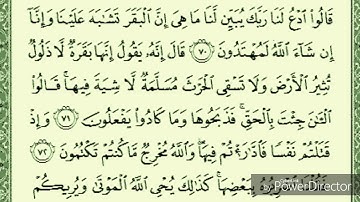 قَالُوا۟ ٱدْعُ لَنَا رَبَّكَ يُبَيِّن لَّنَا مَا هِىَ إِنَّ ٱلْبَقَرَ تَشَـٰبَهَ عَلَيْنَا وَإِنَّآ
إِن شَآءَ ٱللَّهُ لَمُهْتَدُونَ ٧٠ قَالَ إِنَّهُۥ يَقُولُ إِنَّهَا بَقَرَةٌ لَّا ذَلُولٌ
تُثِيرُ ٱلْأَرْضَ وَلَا تَسْقِى ٱلْحَرْثَ مُسَلَّمَةٌ لَّا شِيَةَ فِيهَا ۚ قَالُوا۟
ٱلْـَٔـٰنَ جِئْتَ بِٱلْحَقِّ ۚ فَذَبَحُوهَا وَمَا كَادُوا۟ يَفْعَلُونَ ٧١ وَإِذْ
قَتَلْتُمْ نَفْسًا فَٱدَّٰرَْٰٔتُمْ فِيهَا ۖ وَٱللَّهُ مُخْرِجٌ مَّا كُنتُمْ تَكْتُمُونَ ٧٢
بِبَعْضِهَا ۚ كَذَٰلِكَ يُحْىِ ٱللَّهُ ٱلْمَوْتَىٰ وَيُرِيكُمْ
PowerDirector